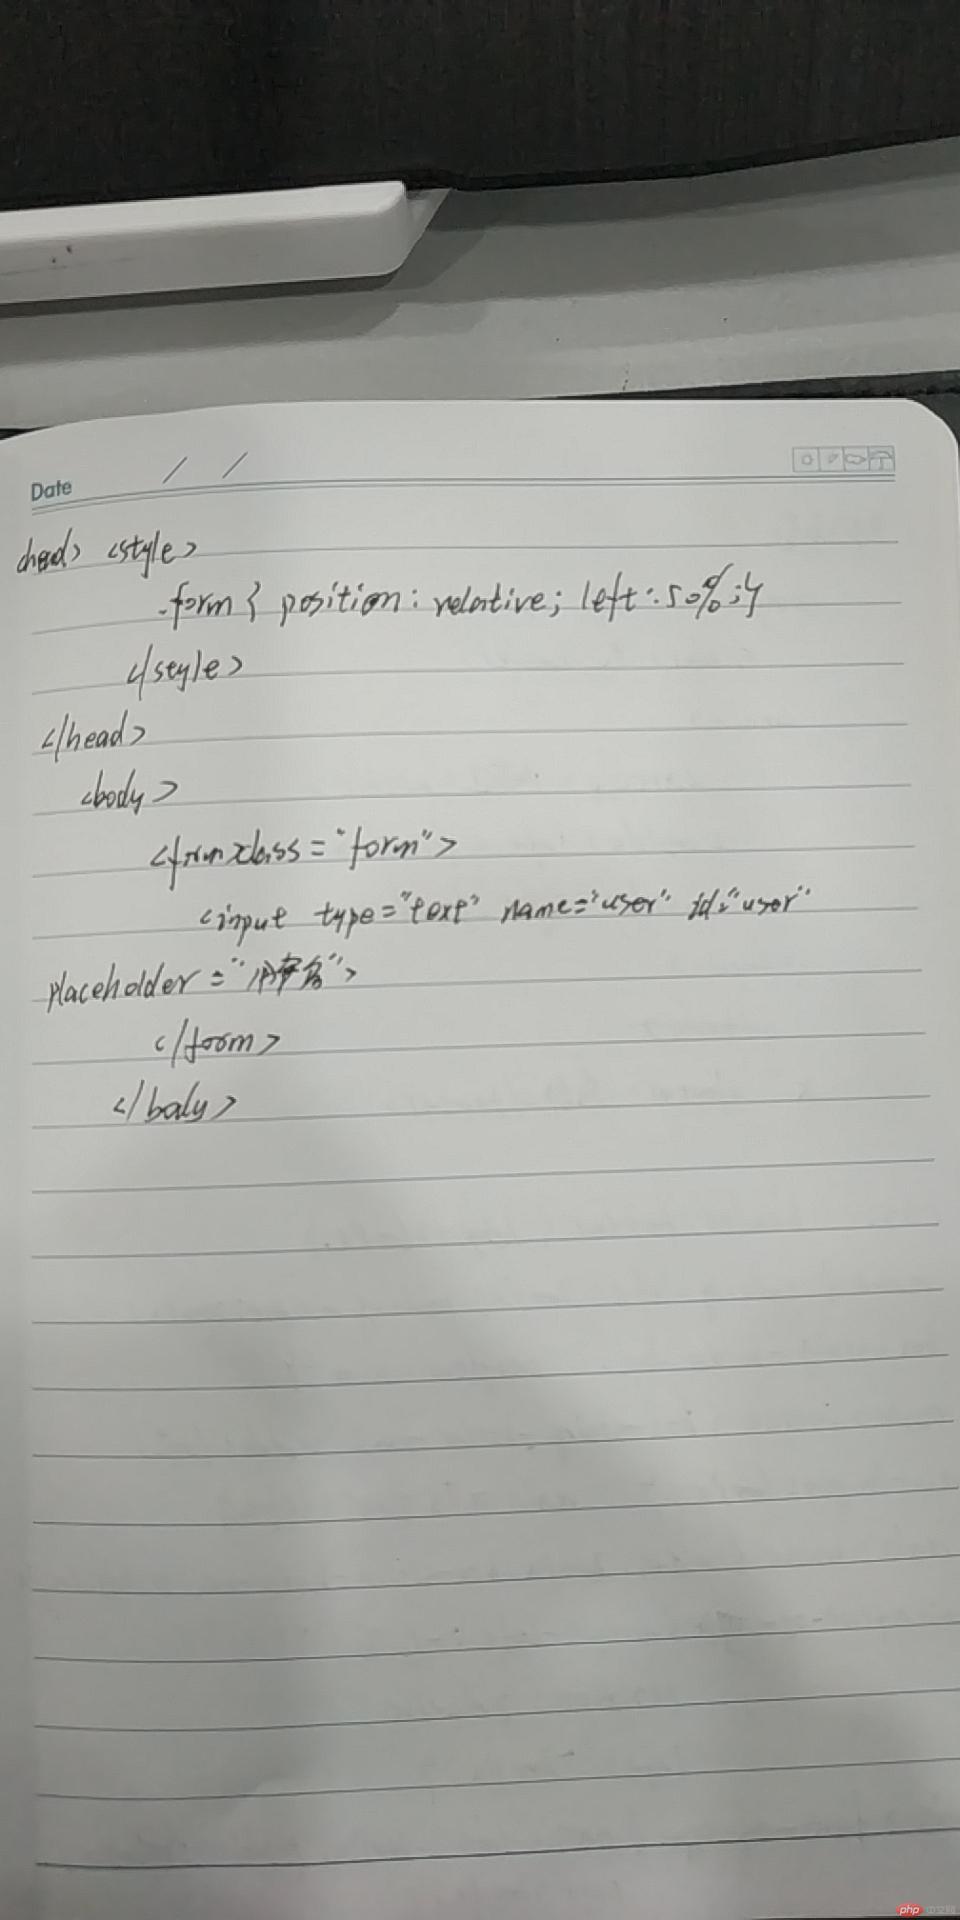 Date / /
<head> <style>
.form { position: relative; left: 50%; }
</style>
</head>
<body>
<form class="form">
<input type="text" name="user" id="user"
placeholder="用户名">
</form>
</body>
php 中文网